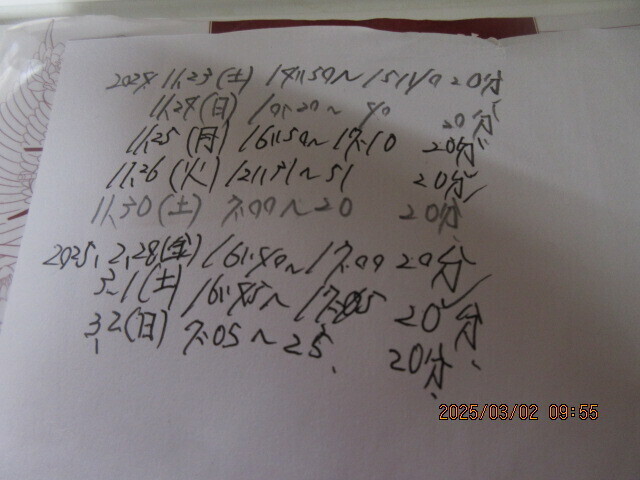 2024, 11,23(土) 14:50~15:10 20分
11,24(日) 10:20~40 20分
11,25(月) 16:50~17:10 20分
11,26(火) 12:31~51 20分
11,30(土) 7:00~20 20分
2025, 2,28(金) 16:40~17:00 20分
3,1(土) 16:45~17:05 20分
3,2(日) 7:05~25 20分
2025/03/02 09:55